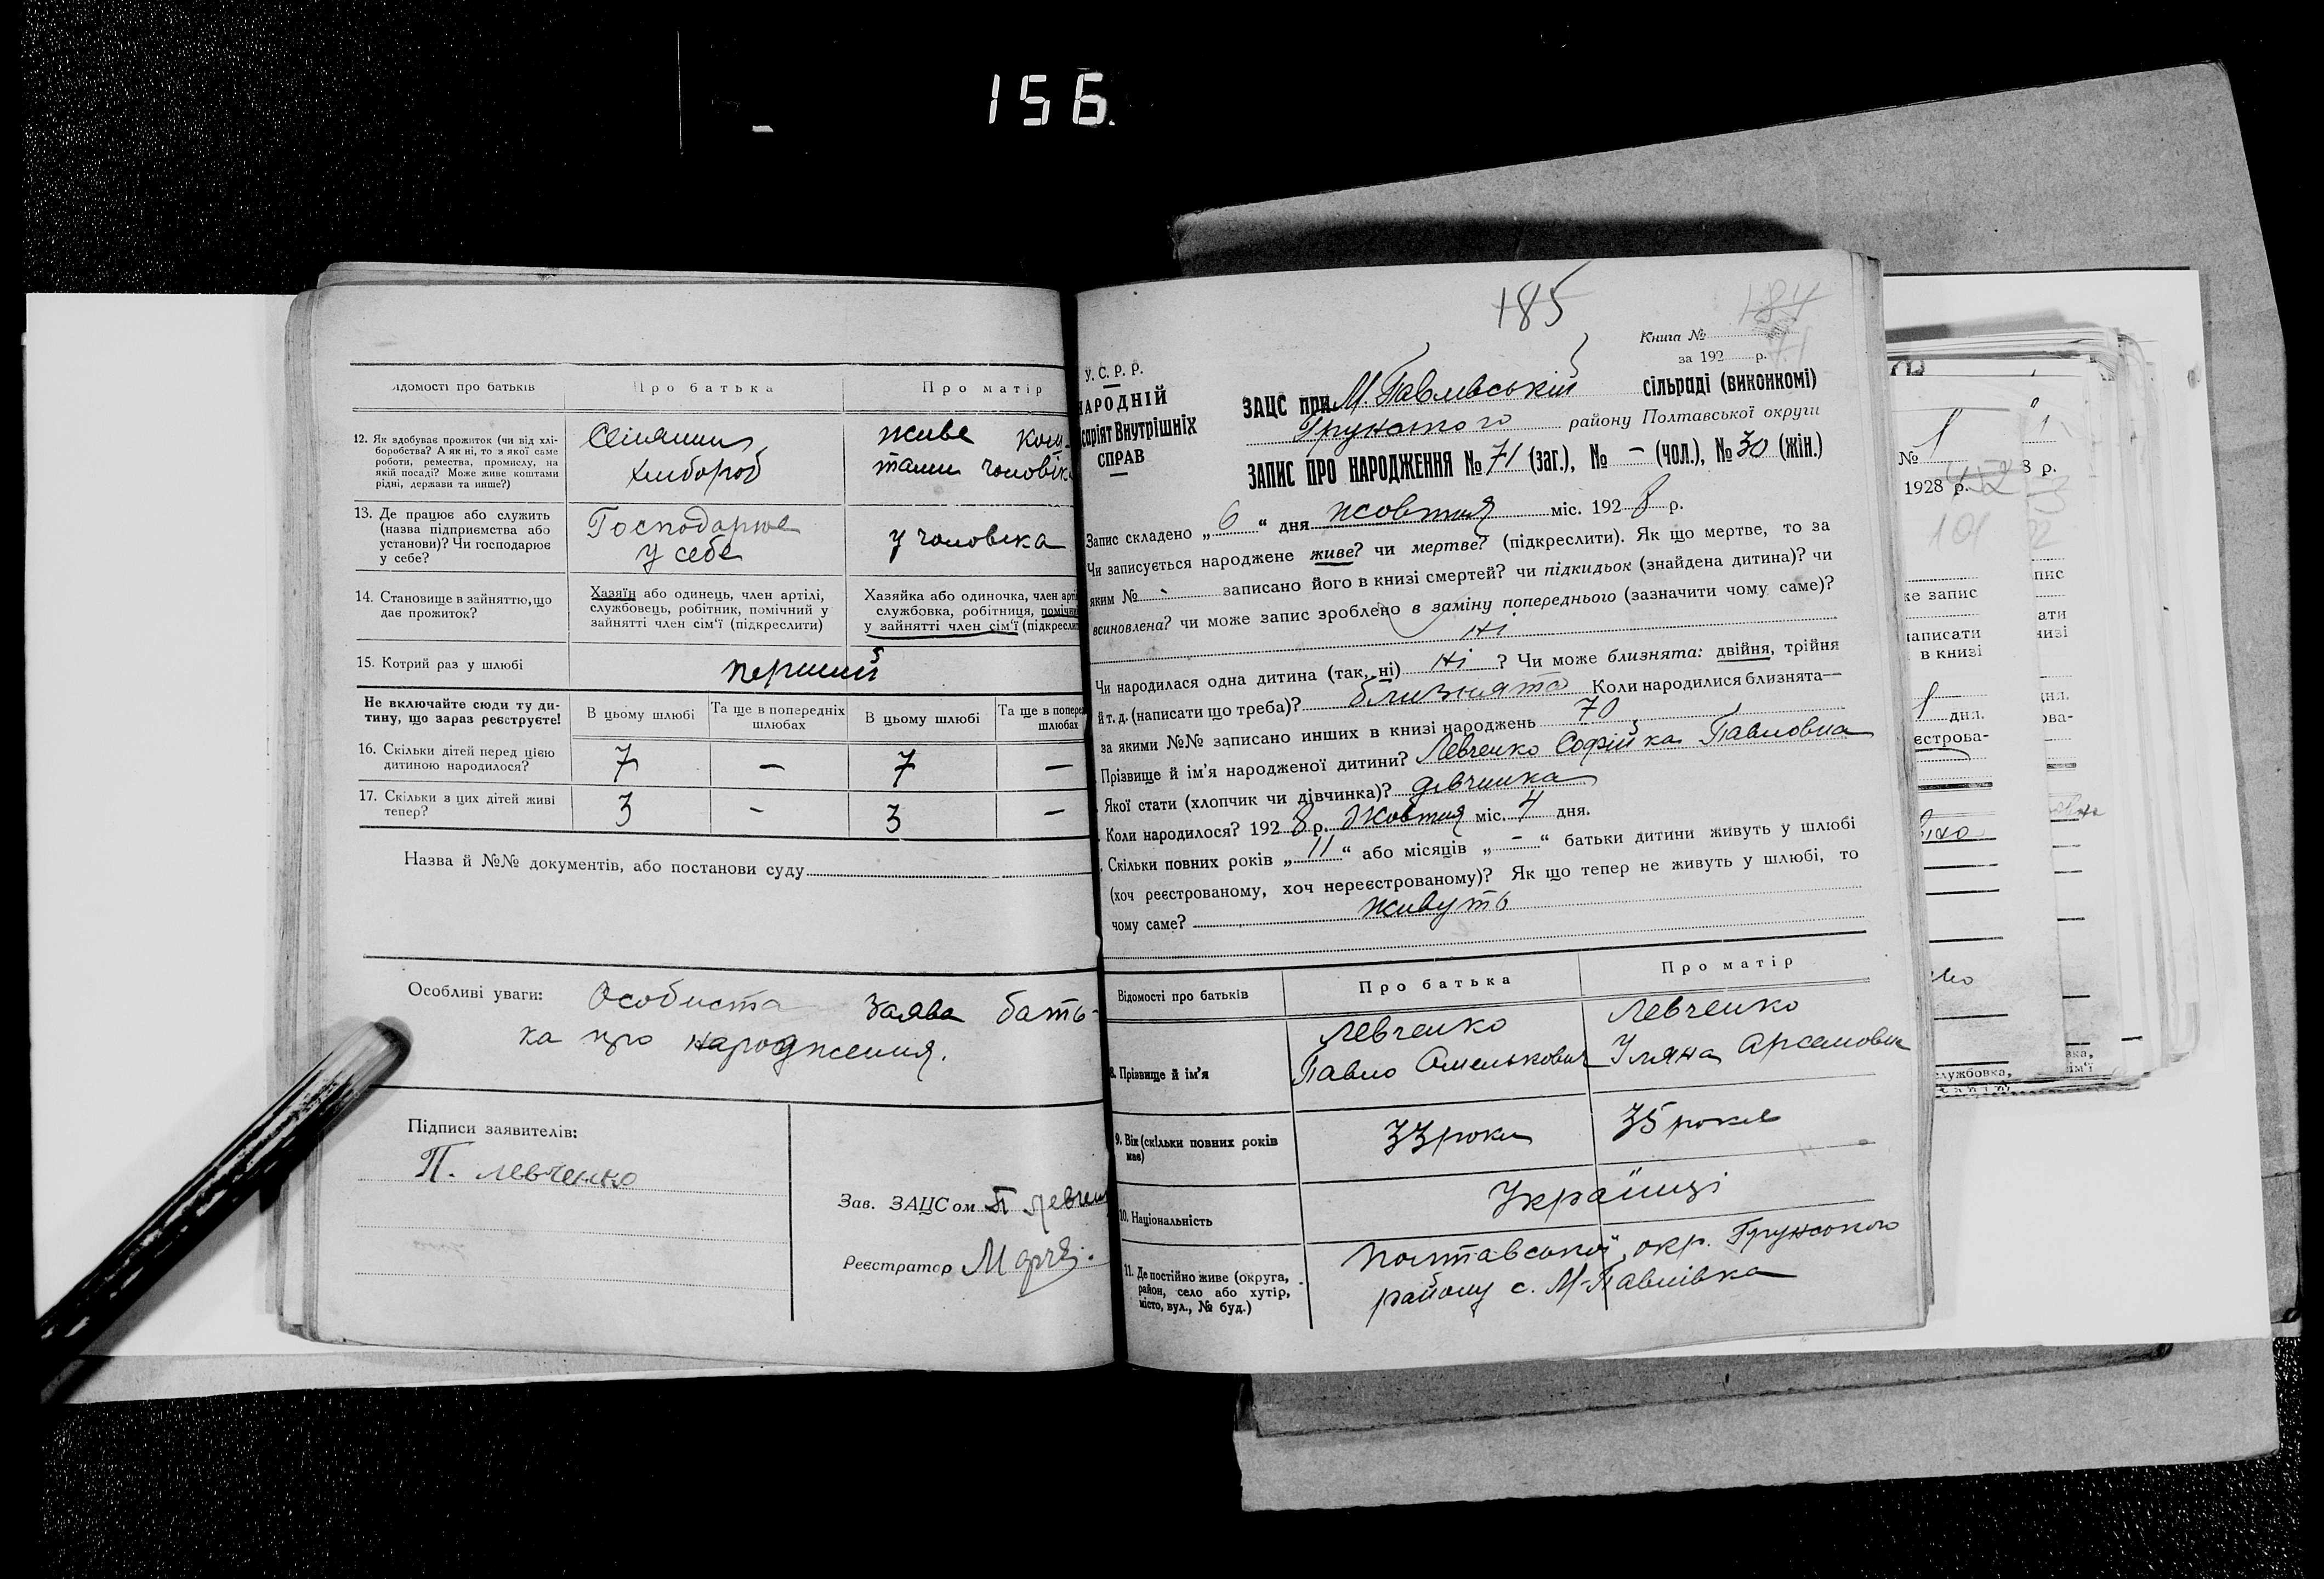 156.
Відомості про батьків
Про батька
Про матір
12. Як здобуває прожиток (чи від хлі-
боробства? А як ні, то з якої саме
роботи, ремества, промислу, на
якій посаді? Може живе коштами
рідні, держави та инше?)
Селянин
хлібороб
живе кош-
тами чоловіка
13. Де працює або служить
(назва підприємства або
установи)? Чи господарює
у себе?
Господарює
у себе
у чоловіка
14. Становище в зайняттю, що
дає прожиток?
Хазяїн або одинець, член артілі,
службовець, робітник, помічний у
зайнятті член сім'ї (підкреслити)
Хазяйка або одиночка, член арті
службовка, робітниця, помічни
у зайнятті член сім'ї (підкресли
15. Котрий раз у шлюбі
перший
Не включайте сюди ту ди-
тину, що зараз реєструєте!
В цьому шлюбі
Та ще в попередніх
шлюбах
В цьому шлюбі
Та ще в попере
шлюбах
16. Скільки дітей перед цією
дитиною народилося?
7 — 7 —
17. Скільки з цих дітей живі
тепер?
3 - 3 —
Назва й №№ документів, або постанови суду
Особливі уваги: Особиста заява бать-
ка про народження.
Підписи заявителів:
П. Левченко
Зав. ЗАЦСом П Левчен
Реєстратор
185
184
Книга №
за 192 р.
У. С. Р. Р.
НАРОДНІЙ
саріят Внутрішніх
СПРАВ
ЗАЦС при М. Павлівській сільраді (виконкомі)
Грунського району Полтавської округи
ЗАПИС ПРО НАРОДЖЕННЯ № 71 (заг.), № – (чол.), № 30 (жін.)
Запис складено „ 6 “ дня жовтня міс. 192 8 р.
Чи записується народжене живе? чи мертве? (підкреслити). Як що мертве, то за
яким № - записано його в книзі смертей? чи підкидьок (знайдена дитина)? чи
всиновлена? чи може запис зроблено в заміну попереднього (зазначити чому саме)?
Ні
Чи народилася одна дитина (так, ні) Ні ? Чи може близнята: двійня, трійня
й т. д. (написати що треба)? близнята Коли народилися близнята—
за якими №№ записано инших в книзі народжень 70
Прізвище й ім'я народженої дитини? Левченко Софійка Павловна
Якої стати (хлопчик чи дівчинка)? дівчинка
Коли народилося? 192 8 р. Жовтня міс. 4 дня.
Скільки повних років „ 11 “ або місяців „ – “ батьки дитини живуть у шлюбі
(хоч реєстрованому, хоч нереєстрованому)? Як що тепер не живуть у шлюбі, то
чому саме? живуть
Відомості про батьків
Про батька
Про матір
8. Прізвище й ім'я
Левченко
Павло Омелькович
Левченко
Уляна Арсеновна
9. Вік (скільки повних років
має)
33 роки
35 років
10. Національність
Українці
11. Де постійно живе (округа,
район, село або хутір,
місто, вул., № буд.)
Полтавської окр. Грунського
району с. М-Павлівка
№ 1
1928 р.
8 р.
101
пис
же запис
ати
написати
книзі
в книзі
дня.
дня.
ова-
естрова-
вка,
службовка,
ім'ї